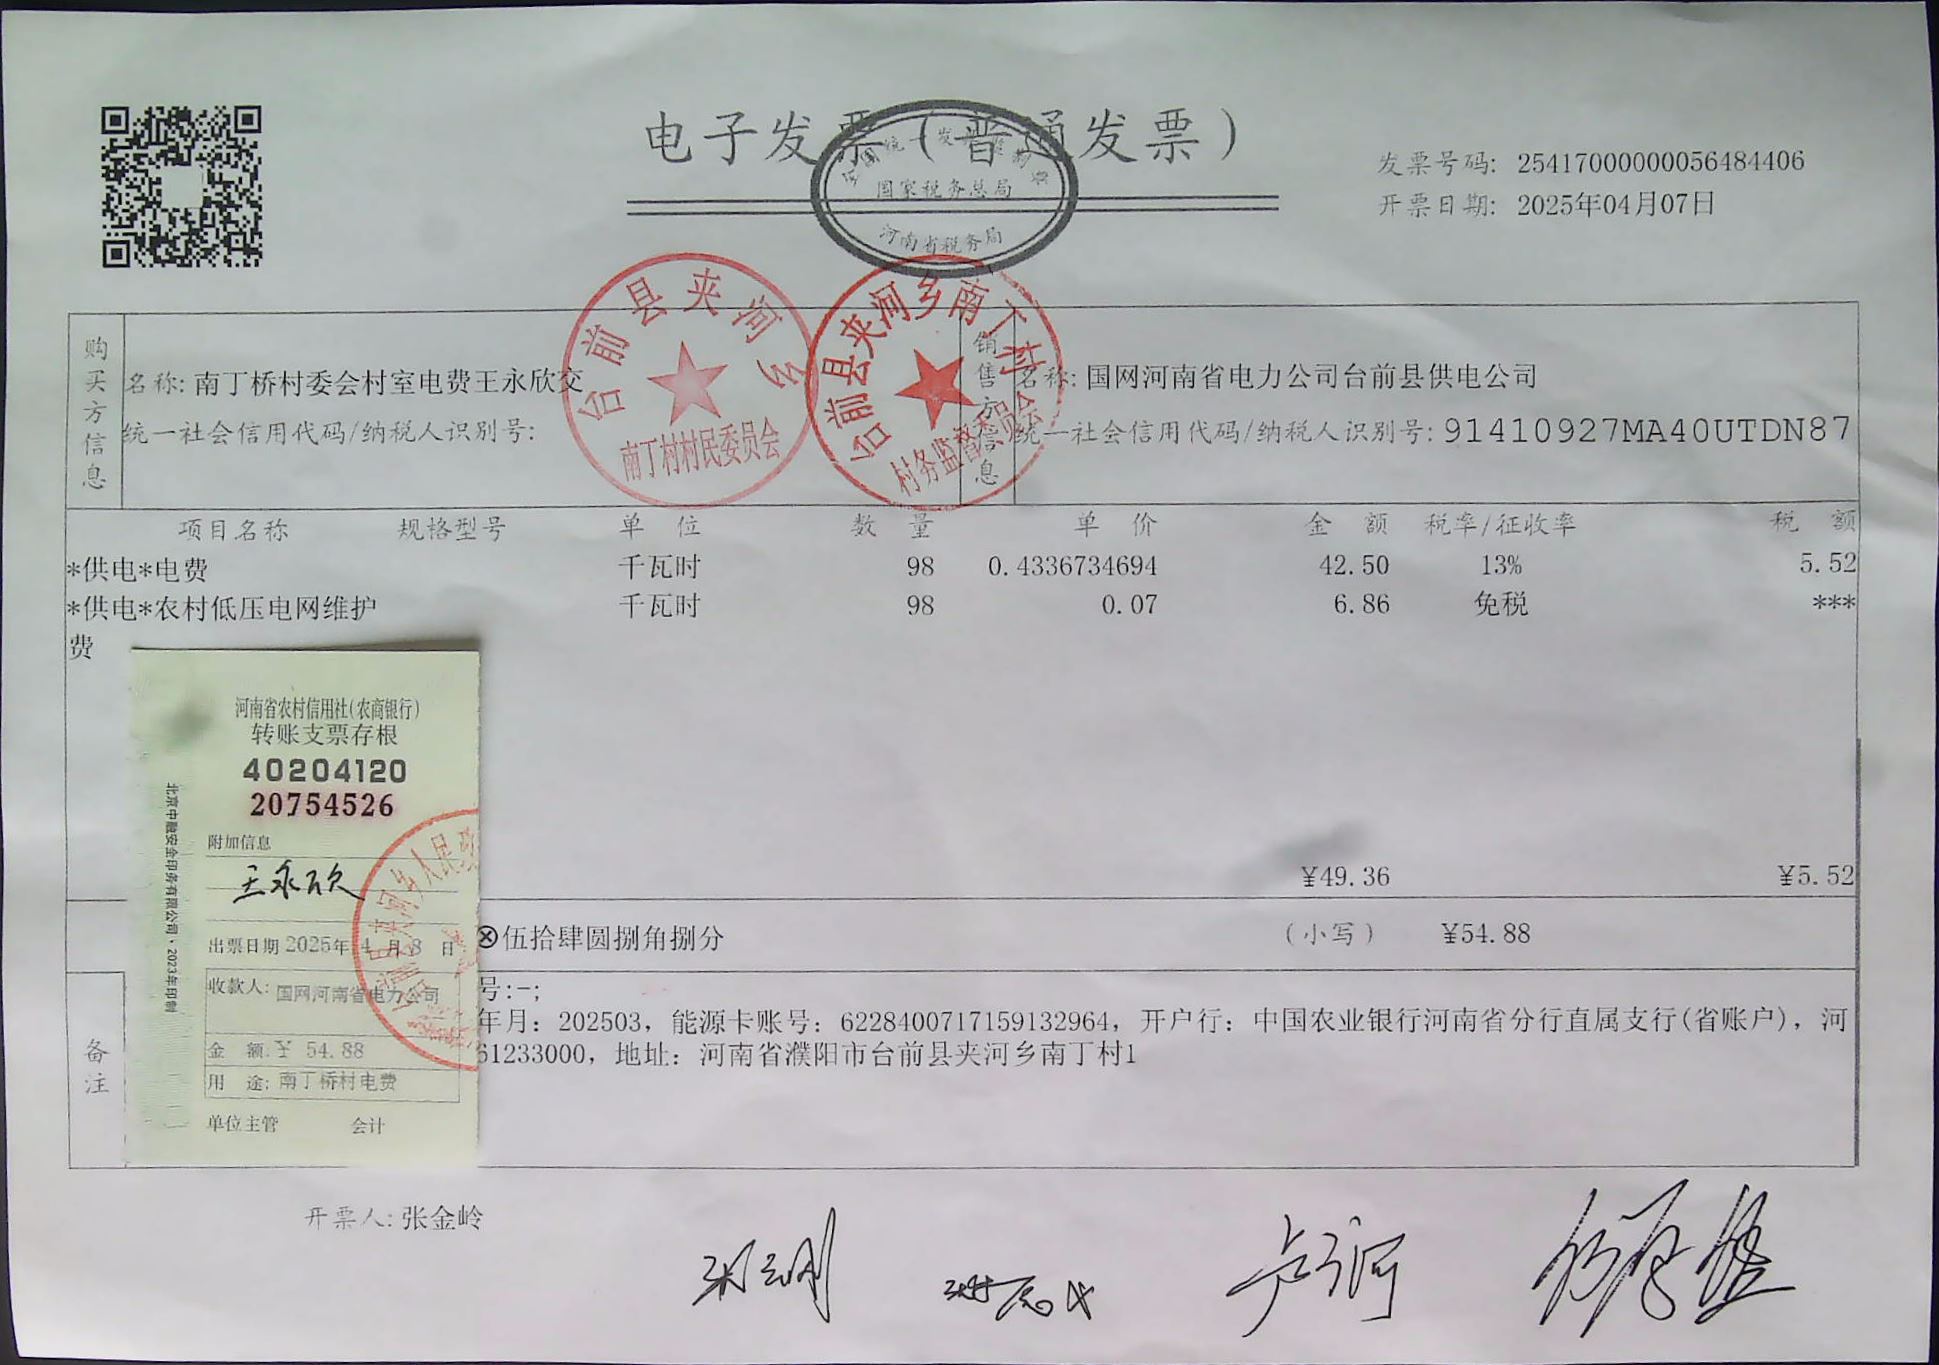 电子发票（普通发票）
全国统一发票监制章
国家税务总局
河南省税务局
发票号码: 25417000000056484406
开票日期: 2025年04月07日
台前县夹河乡
南丁村村民委员会
台前县夹河乡南丁村
村务监督委员会
购买方信息
名称: 南丁桥村委会村室电费王永欣交
统一社会信用代码/纳税人识别号:
销售方信息
名称: 国网河南省电力公司台前县供电公司
统一社会信用代码/纳税人识别号: 91410927MA40UTDN87
项目名称 规格型号 单 位 数 量 单 价 金 额 税率/征收率 税 额
*供电*电费 千瓦时 98 0.4336734694 42.50 13% 5.52
*供电*农村低压电网维护 千瓦时 98 0.07 6.86 免税 ***
费
¥49.36 ¥5.52
ⓧ伍拾肆圆捌角捌分 (小写) ¥54.88
备注
号:-;
年月: 202503, 能源卡账号: 6228400717159132964, 开户行: 中国农业银行河南省分行直属支行(省账户), 河
61233000, 地址: 河南省濮阳市台前县夹河乡南丁村1
河南省农村信用社(农商银行)
转账支票存根
40204120
20754526
附加信息
王永欣
出票日期 2025年 4 月 8 日
收款人: 国网河南省电力公司
金 额: ¥ 54.88
用 途: 南丁桥村电费
单位主管 会计
北京中融安全印务有限公司·2023年印制
开票人: 张金岭